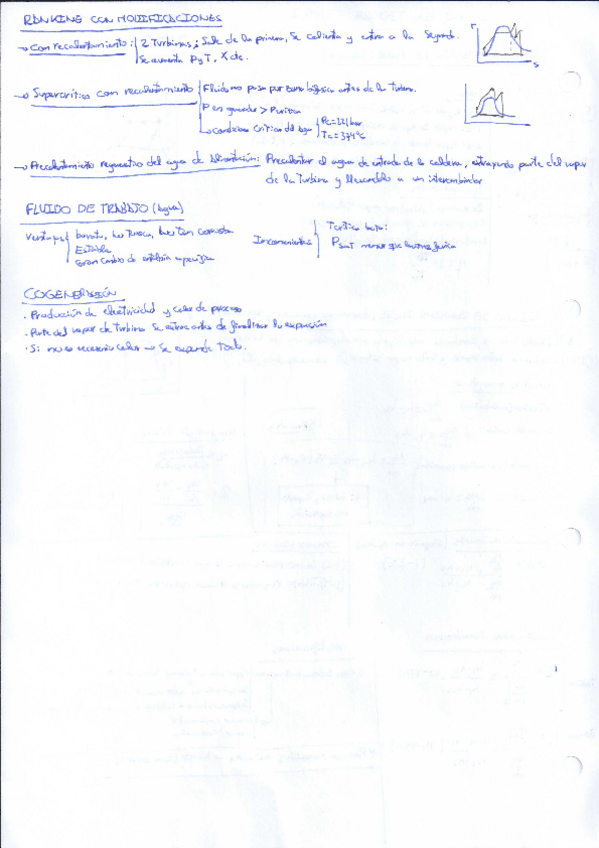 RANKING CON MODIFICACIONES
→ Con recalentamiento: 2 Turbinas; Sale de la primera, Se calienta y entra a la Segunda.
Se aumenta P y T, X de.
T
S
→ Supercrítico con recalentamiento Fluido no pasa por antes de la Turbina.
P en generador > P crítica
→ condiciones Críticas del agua
Tc = 374°C
→ Precalentamiento regenerativo del agua de alimentación: Precalentar el agua de entrada de la caldera, extrayendo parte del vapor
de la Turbina y llevándolo a un intercambiador
FLUIDO DE TRABAJO (Agua)
Ventajas barato, no Tóxico, no
Estable
Gran cambio de entalpía específica
Inconvenientes
T crítica baja:
P sat menor que
COGENERACIÓN
· Producción de electricidad y calor de proceso
· Parte del vapor de Turbina Se extrae antes de finalizar la expansión
· Si no es necesario calor → Se expande Todo.